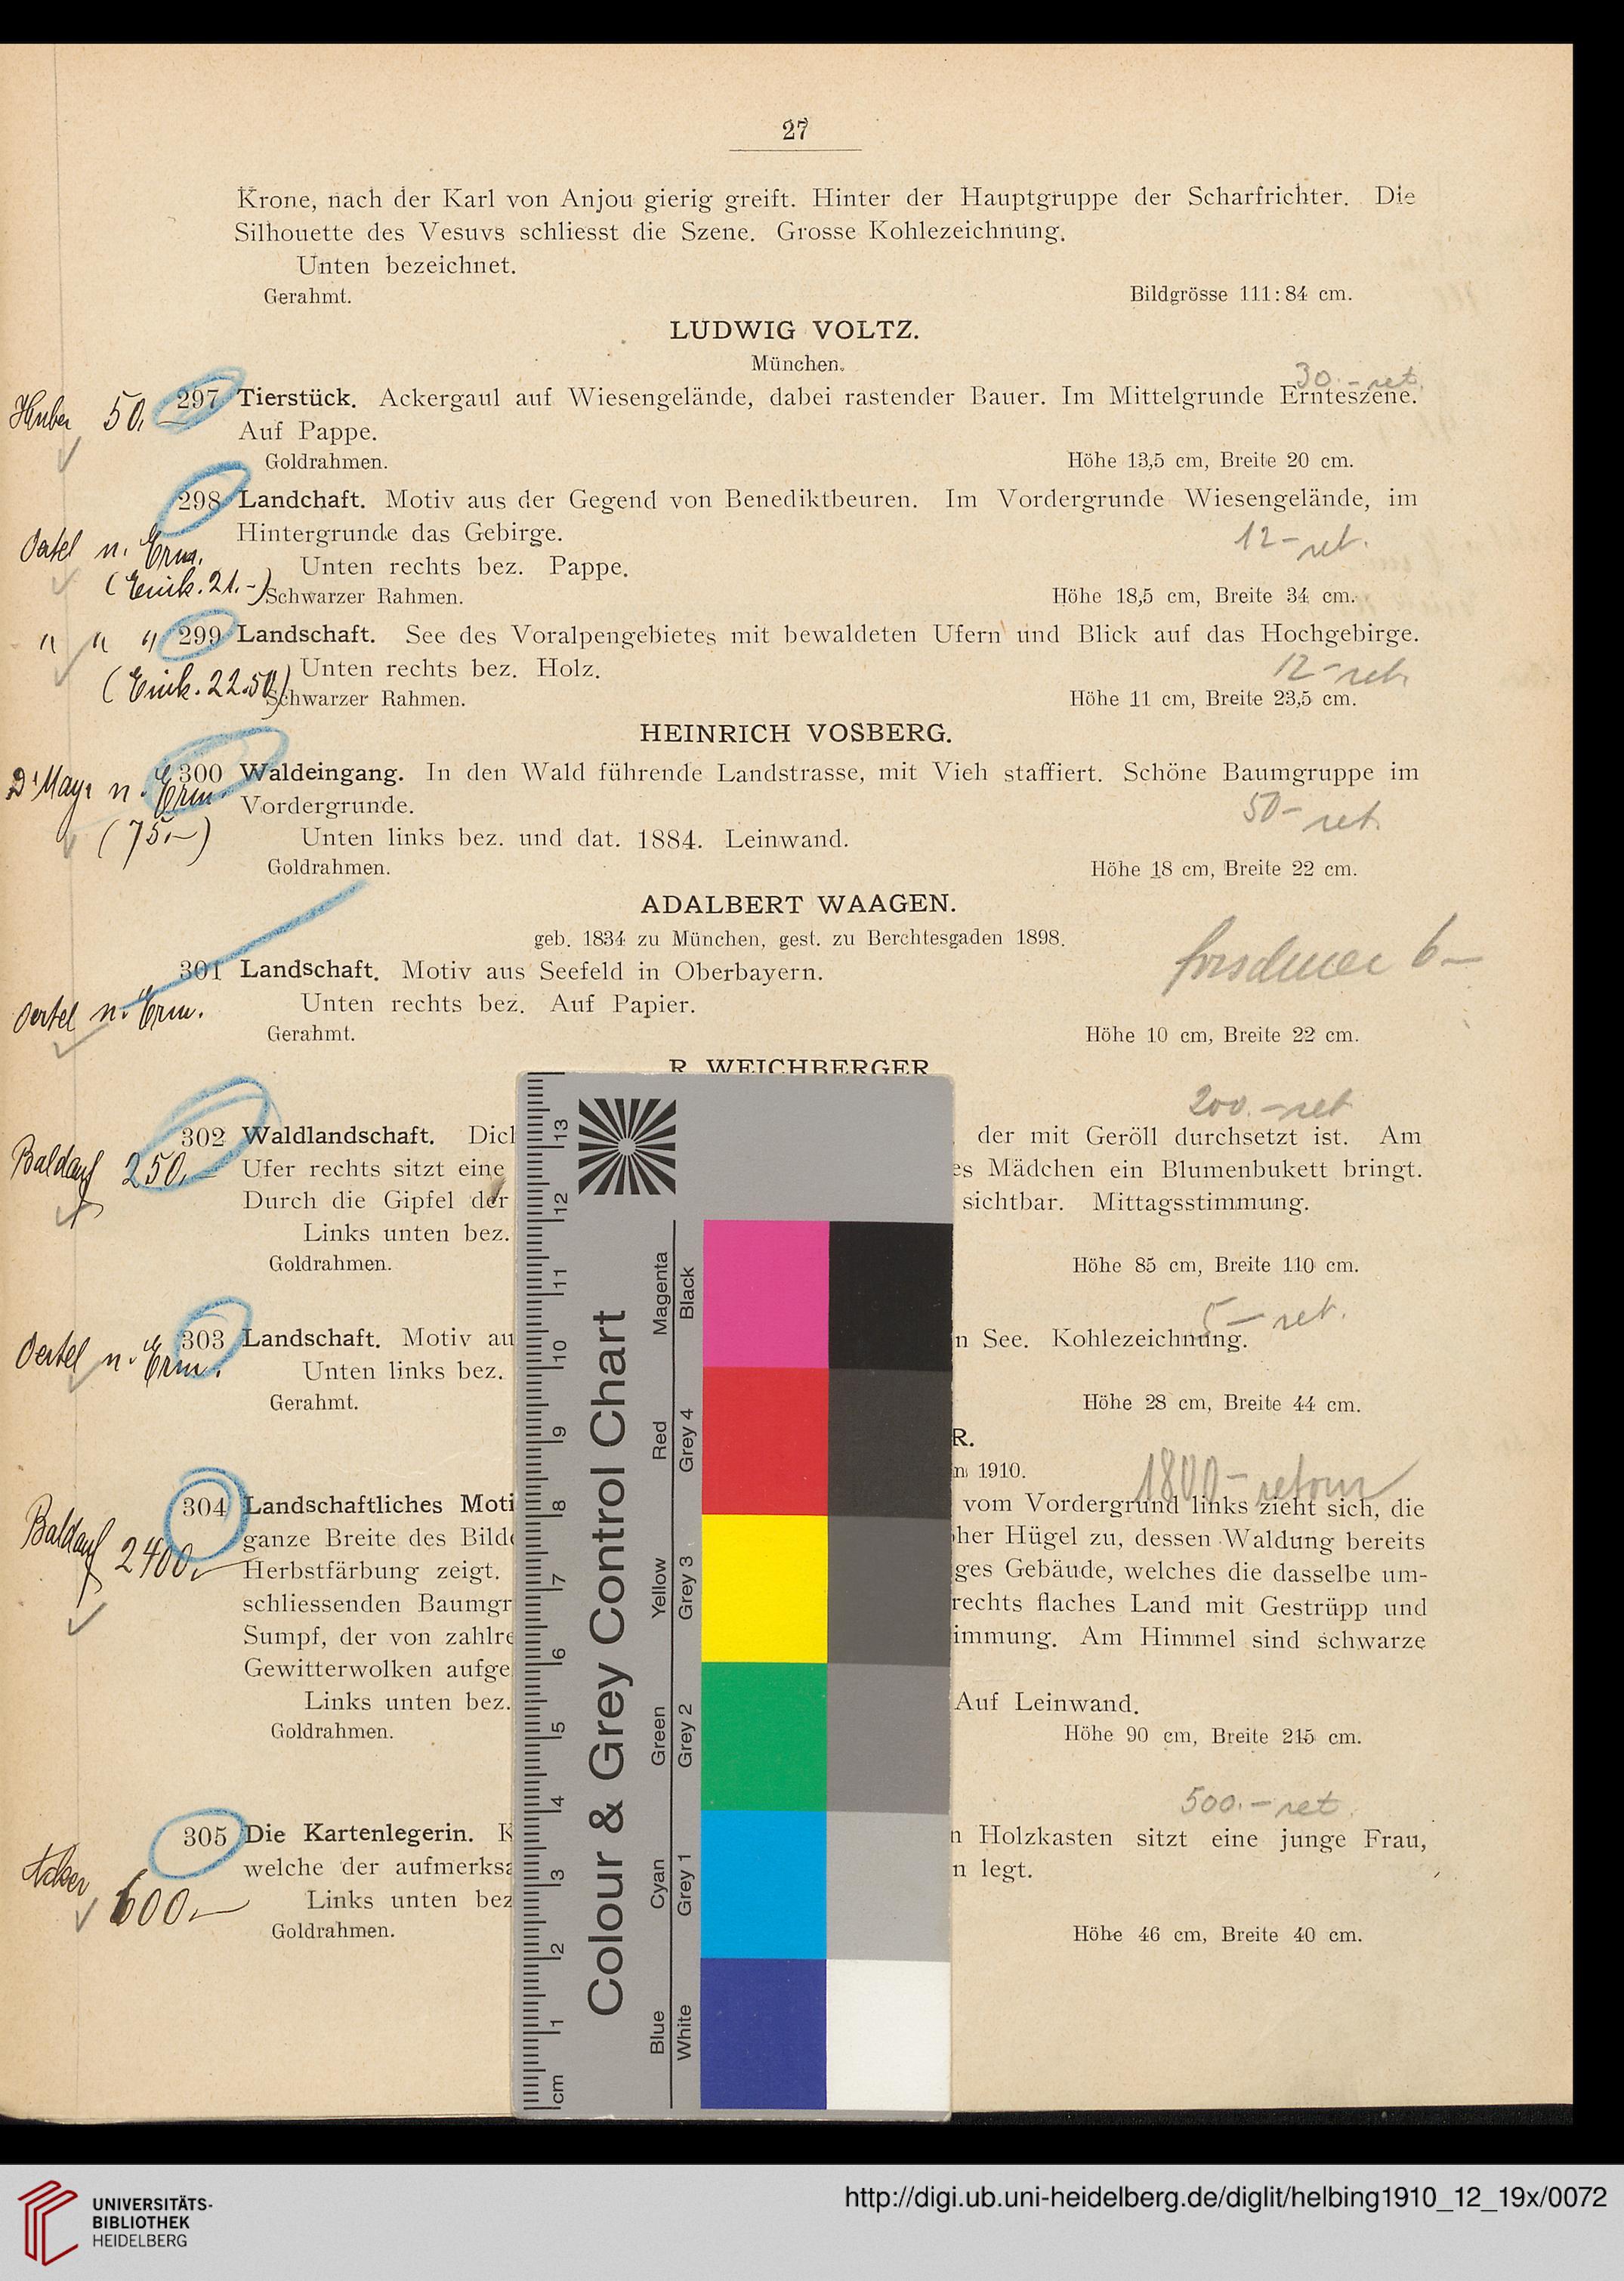 27
Krone, nach der Karl von Anjou gierig greift. Hinter der Hauptgruppe der Scharfrichter. Die
Silhouette des Vesuvs schliesst die Szene. Grosse Kohlezeichnung.
Unten bezeichnet.
Gerahmt. Bildgrösse 111:84 cm.
LUDWIG VOLTZ.
München.
30.- ret.
Huber 50.- 297 Tierstück. Ackergaul auf Wiesengelände, dabei rastender Bauer. Im Mittelgrunde Ernteszene.
Auf Pappe.
Goldrahmen. Höhe 13,5 cm, Breite 20 cm.
298 Landchaft. Motiv aus der Gegend von Benediktbeuren. Im Vordergrunde Wiesengelände, im
Hintergrunde das Gebirge. 12- ret.
Oertel n. Erm. Unten rechts bez. Pappe.
21.-) Schwarzer Rahmen. Höhe 18,5 cm, Breite 34 cm.
" " " 299 Landschaft. See des Voralpengebietes mit bewaldeten Ufern und Blick auf das Hochgebirge.
Unten rechts bez. Holz. 12- ret.
22.50) Schwarzer Rahmen. Höhe 11 cm, Breite 23,5 cm.
HEINRICH VOSBERG.
Dr Mayr n. Erm. 300 Waldeingang. In den Wald führende Landstrasse, mit Vieh staffiert. Schöne Baumgruppe im
Vordergrunde. 50- ret.
(75.-) Unten links bez. und dat. 1884. Leinwand.
Goldrahmen. Höhe 18 cm, Breite 22 cm.
ADALBERT WAAGEN.
geb. 1834 zu München, gest. zu Berchtesgaden 1898.
6-
301 Landschaft. Motiv aus Seefeld in Oberbayern.
Oertel n. Erm. Unten rechts bez. Auf Papier.
Gerahmt. Höhe 10 cm, Breite 22 cm.
R. WEICHBERGER
200.- ret
302 Waldlandschaft. der mit Geröll durchsetzt ist. Am
Baldauf 250.- Ufer rechts sitzt eine es Mädchen ein Blumenbukett bringt.
Durch die Gipfel der sichtbar. Mittagsstimmung.
Links unten bez.
Goldrahmen. Höhe 85 cm, Breite 110 cm.
5- ret.
303 Landschaft. Motiv au n See. Kohlezeichnung.
Oertel n. Erm. Unten links bez.
Gerahmt. Höhe 28 cm, Breite 44 cm.
R.
n 1910.
1800- retour
304 Landschaftliches Moti vom Vordergrund links zieht sich, die
Baldauf 2400.- ganze Breite des Bild her Hügel zu, dessen Waldung bereits
Herbstfärbung zeigt. ges Gebäude, welches die dasselbe um-
schliessenden Baumgr rechts flaches Land mit Gestrüpp und
Sumpf, der von zahlre immung. Am Himmel sind schwarze
Gewitterwolken aufge
Links unten bez. Auf Leinwand.
Goldrahmen. Höhe 90 cm, Breite 215 cm.
500.- ret.
305 Die Kartenlegerin. K n Holzkasten sitzt eine junge Frau,
welche der aufmerksa n legt.
600.- Links unten bez
Goldrahmen. Höhe 46 cm, Breite 40 cm.
Colour & Grey Control Chart
Blue Cyan Green Yellow Red Magenta
White Grey 1 Grey 2 Grey 3 Grey 4 Black
cm 1 2 3 4 5 6 7 8 9 10 11 12 13
UNIVERSITÄTS-
BIBLIOTHEK
HEIDELBERG
http://digi.ub.uni-heidelberg.de/diglit/helbing1910_12_19x/0072